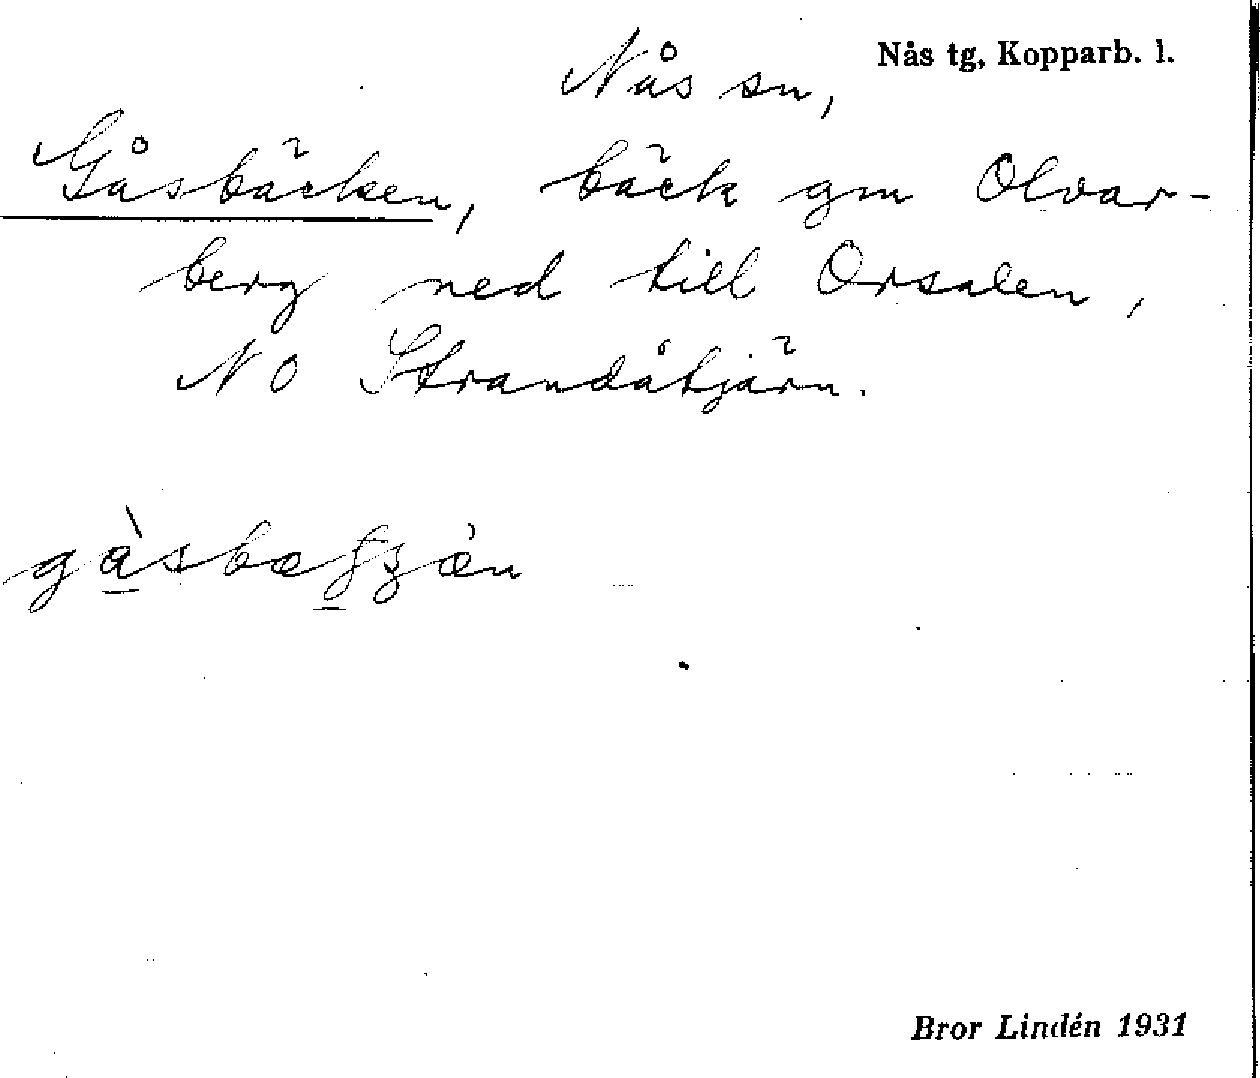 Nås tg, Kopparb. l.
Nås sn,
Gåsbäcken, bäck gm Olvar-
berg ned till Orsalen,
NO Strandåtjärn.
Bror Lindén 1931